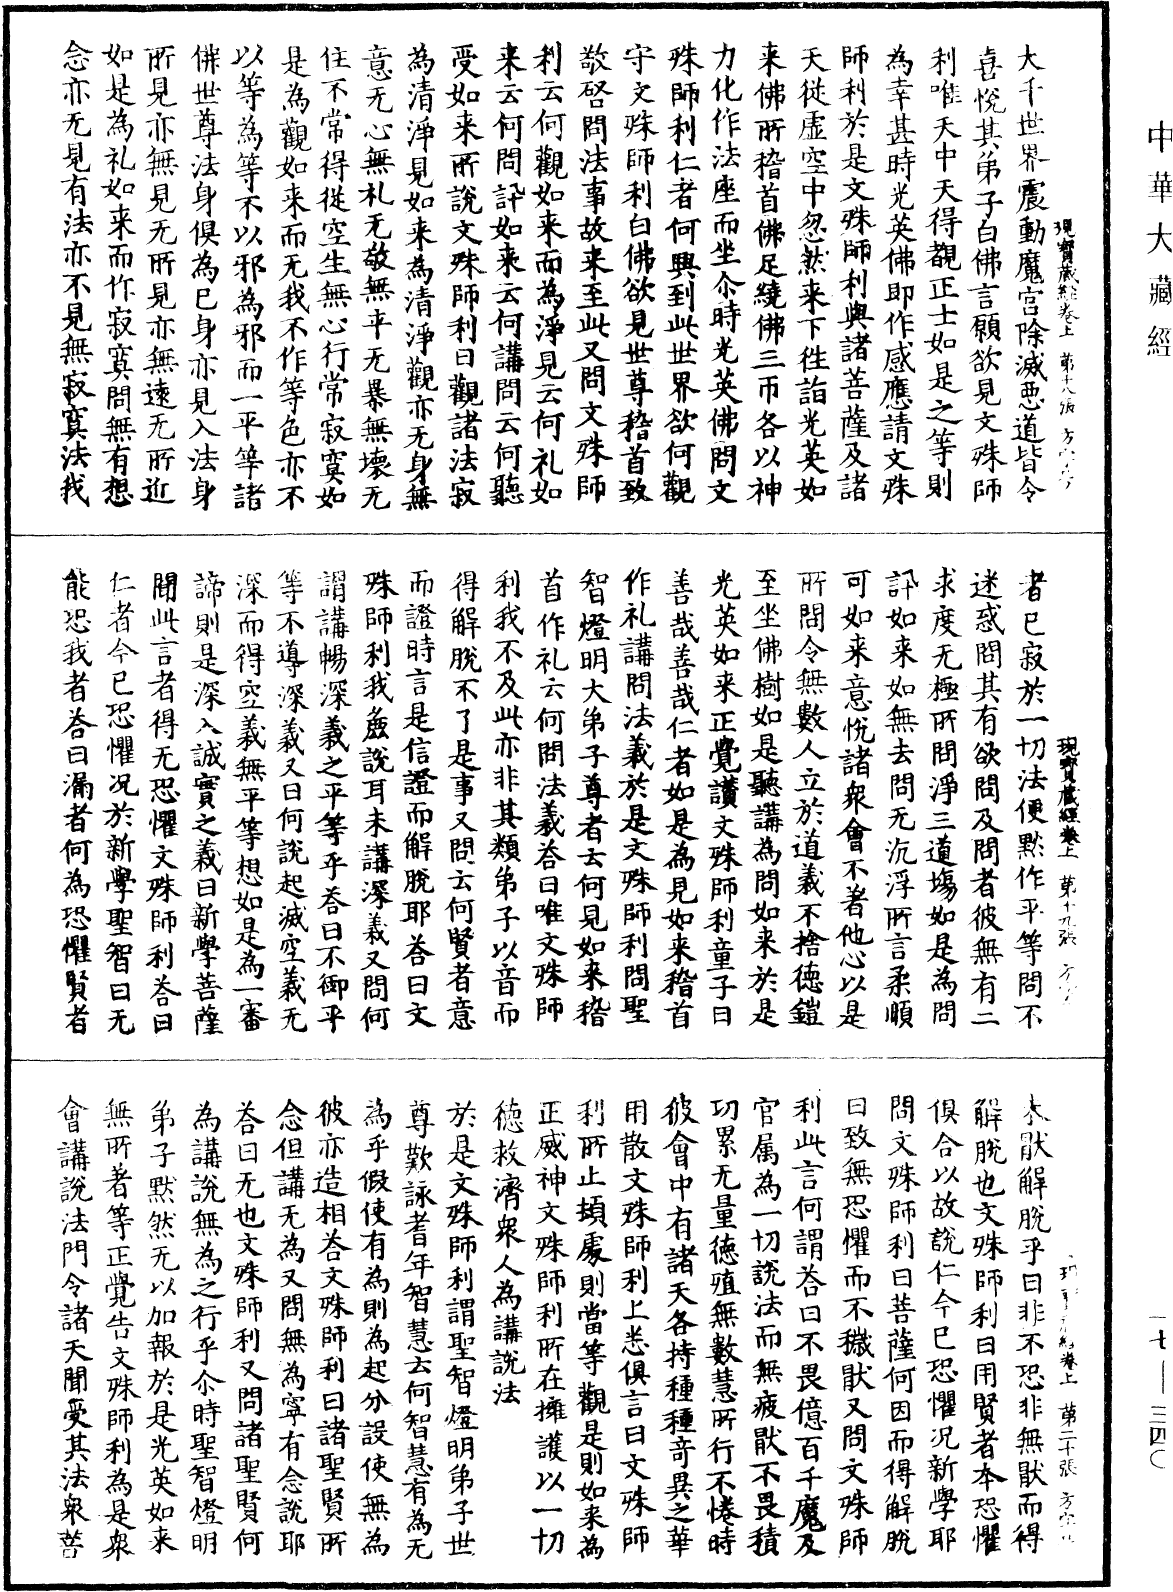 中華大藏經
大千世界震動魔宮除滅惡道皆令
喜悅其弟子白佛言願欲見文殊師
利唯天中天得覩正士如是之等則
為幸甚時光英佛即作感應請文殊
師利於是文殊師利與諸菩薩及諸
天從虛空中忽然来下徃詣光英如
来佛所稽首佛足繞佛三帀各以神
力化作法座而坐尒時光英佛問文
殊師利仁者何興到此世界欲何觀
守文殊師利白佛欲見世尊稽首致
敬啓問法事故来至此又問文殊師
利云何觀如来而為淨見云何礼如
来云何問訊如来云何講問云何聽
受如来所說文殊師利曰觀諸法寂
為清淨見如来為清淨觀亦无身無
意无心無礼无敬無卒无暴無壞无
住不常得從空生無心行常寂寞如
是為觀如来而无我不作等色亦不
以等為等不以邪為邪而一平等諸
佛世尊法身俱為已身亦見入法身
所見亦無見无所見亦無遠无所近
如是為礼如来而作寂寞問無有想
念亦无見有法亦不見無寂寞法我
現寶藏經卷上 第十八張
者已寂於一切法便默作平等問不
迷惑問其有欲問及問者彼無有二
求度无極所問淨三道場如是為問
訊如来如無去問无沉浮所言柔順
可如来意悅諸衆會不著他心以是
所問令無數人立於道義不捨德鎧
至坐佛樹如是聽講為問如来於是
光英如来正覺讚文殊師利童子曰
善哉善哉仁者如是為見如来稽首
作礼講問法義於是文殊師利問聖
智燈明大弟子尊者云何見如来稽
首作礼云何問法義荅曰唯文殊師
利我不及此亦非其類弟子以音而
得解脫不了是事又問云何賢者意
而證時言是信證而解脫耶荅曰文
殊師利我麁說耳未講深義又問何
謂講暢深義之平等乎荅曰不御平
等不導深義又曰何說起滅空義无
深而得空義無平等想如是為一審
諦則是深入誠實之義曰新學菩薩
聞此言者得无恐懼文殊師利荅曰
仁者今已恐懼况於新學聖智曰无
能恐我者荅曰漏者何為恐懼賢者
現寶藏經卷上 第十九張
本猒解脫乎曰非不恐非無猒而得
解脫也文殊師利曰用賢者本恐懼
俱合以故說仁今已恐懼况新學耶
問文殊師利曰菩薩何因而得解脫
曰致無恐懼而不穢猒又問文殊師
利此言何謂荅曰不畏億百千魔及
官属為一切說法而無疲猒不畏積
功累无量德殖無數慧所行不惓時
彼會中有諸天各持種種奇異之華
用散文殊師利上悉俱言曰文殊師
利所止頓處則當等觀是則如来為
正威神文殊師利所在擁護以一切
德救濟衆人為講說法
於是文殊師利謂聖智燈明弟子世
尊歎詠耆年智慧云何智慧有為无
為乎假使有為則為起分設使無為
彼亦造相荅文殊師利曰諸聖賢所
念但講无為又問無為寧有念說耶
荅曰无也文殊師利又問諸聖賢何
為講說無為之行乎尒時聖智燈明
弟子默然无以加報於是光英如来
無所著等正覺告文殊師利為是衆
會講說法門令諸天聞受其法衆菩
卷上 第二十張
一七—三四〇